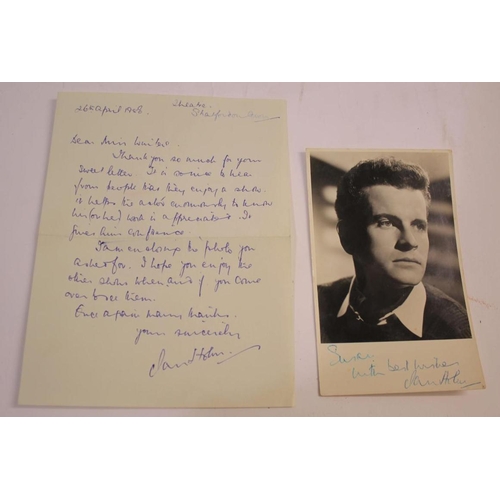 Dear Miss
Thank you so much for your
sweet letter. It is so nice to hear
from people that they enjoy a show.
It helps the actor enormously to know
his (or her) work is appreciated. It
gives him confidence.
I am enclosing the photo you
asked for. I hope you enjoy the
other shows when and if you come
over to see them.
Once again many thanks.
Yours sincerely
Ian Holm.
Susan,
with best wishes
Ian Holm